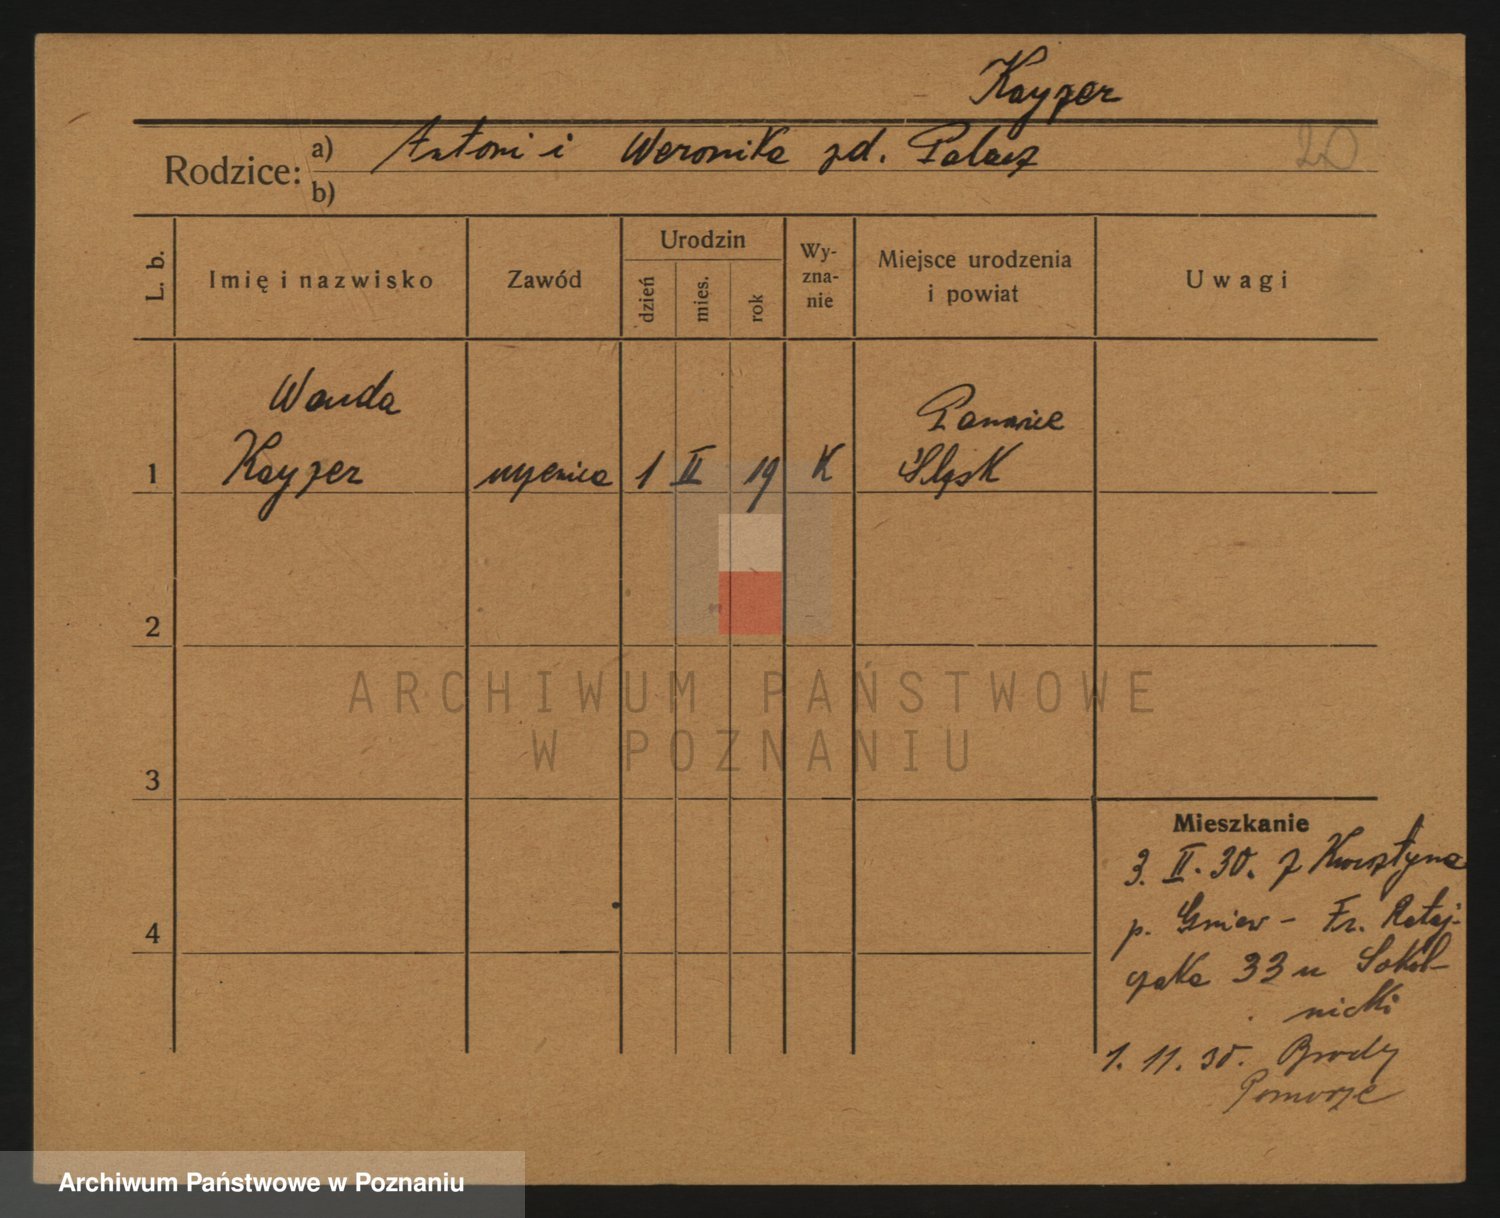 Kayzer
Rodzice: a) Antoni i Weronika zd. Palacz
b)
20
L. b.
Imię i nazwisko
Zawód
Urodzin
dzień
mies.
rok
Wy-
zna-
nie
Miejsce urodzenia
i powiat
Uwagi
Wanda
Kayzer
1
uczenica
1 II 19
K
Śląsk
2
3
4
ARCHIWUM PAŃSTWOWE
W POZNANIU
Mieszkanie
3. II. 30. z
p. Gniew - Fr. Rataj-
czaka 33 u Sokol-
nicki
1. 11. 30. Brody
Pomorze
Archiwum Państwowe w Poznaniu